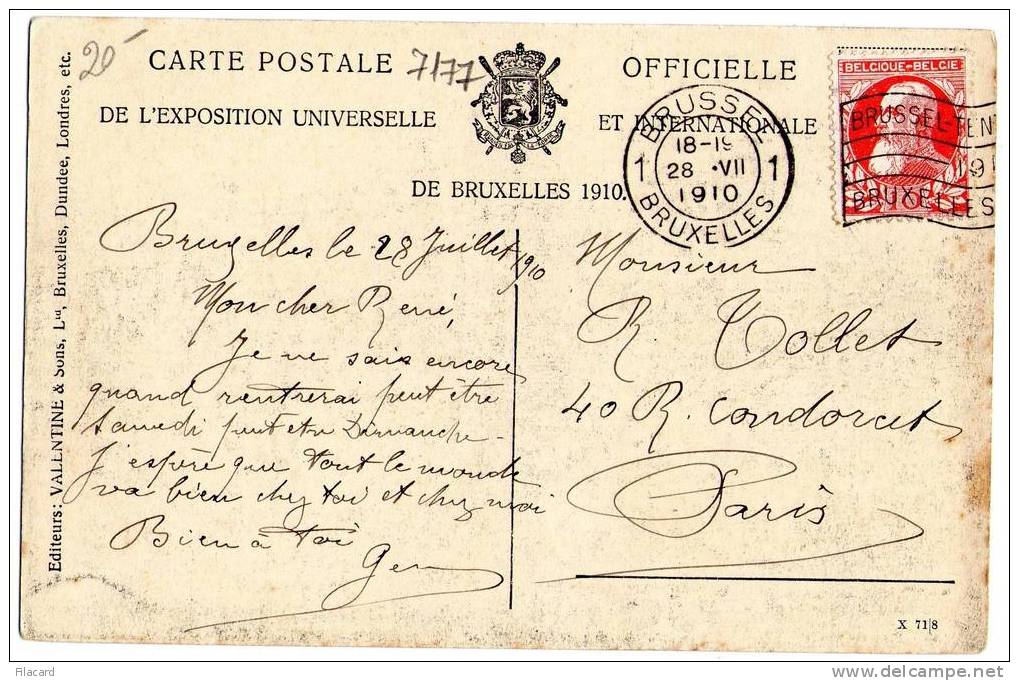 20
CARTE POSTALE
7177
OFFICIELLE
DE L'EXPOSITION UNIVERSELLE
ET INTERNATIONALE
DE BRUXELLES 1910.
BRUSSEL
1 18-19 1
28 ·VII
1910
BRUXELLES
BELGIQUE-BELGIE
BRUSSEL-TENT
191
BRUXELLES
Bruxelles le 28 Juillet 1910
Mon cher René,
Je ne sais encore
quand rentrerai peut être
Samedi peut etre Dimanche
J'espère que tout le monde
va bien chez toi et chez moi
Bien à toi
Monsieur
R. Tollet
40 R. Condorcet
Paris
Editeurs: VALENTINE & Sons, Lᵗᵈ, Bruxelles, Dundee, Londres, etc.
X 71|8
Filacard
delcampe.net